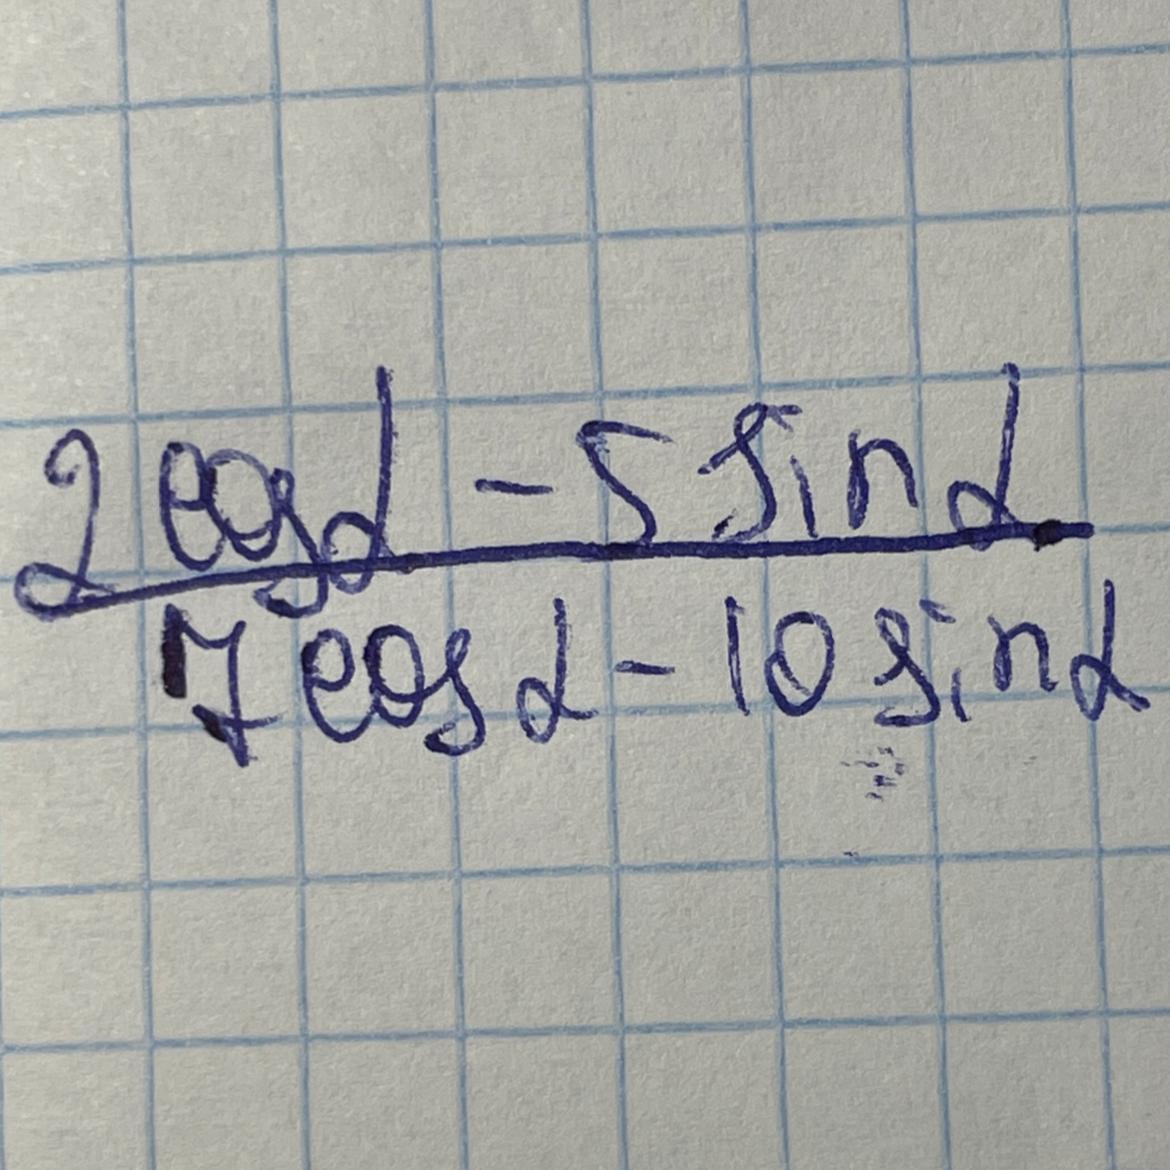 2 cos α - 5 sin α
7 cos α - 10 sin α